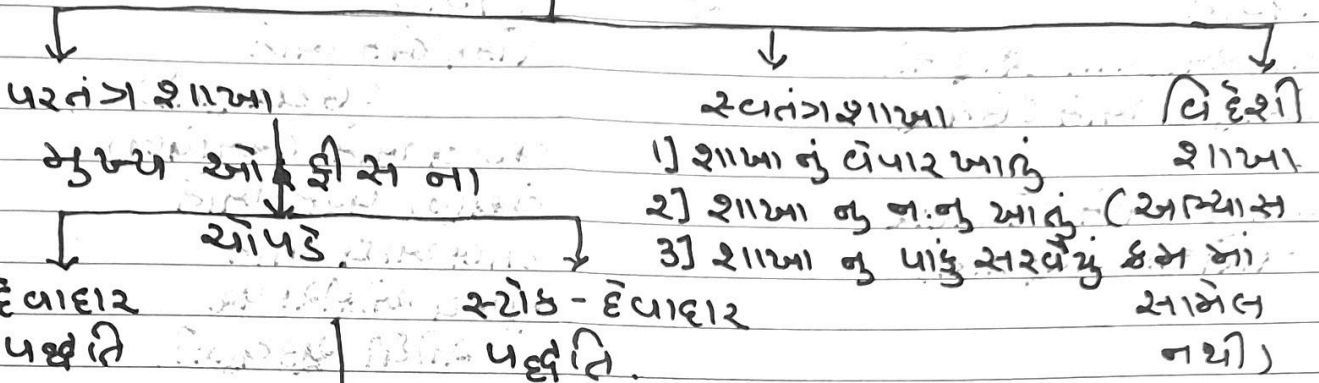 પરતંત્ર શાખા
મુખ્ય ઓફીસ ના
ચોપડે.
દેવાદાર
પધ્ધતિ
સ્ટોક - દેવાદાર
પદ્ધતિ.
સ્વતંત્ર શાખા
1] શાખા નું વેપાર ખાતું
2] શાખા નુ ન.નુ ખાતું
3] શાખા નુ પાકુ સરવૈયું
વિદેશી
શાખા
(અભ્યાસ
ક્રમ માં
સામેલ
નથી)